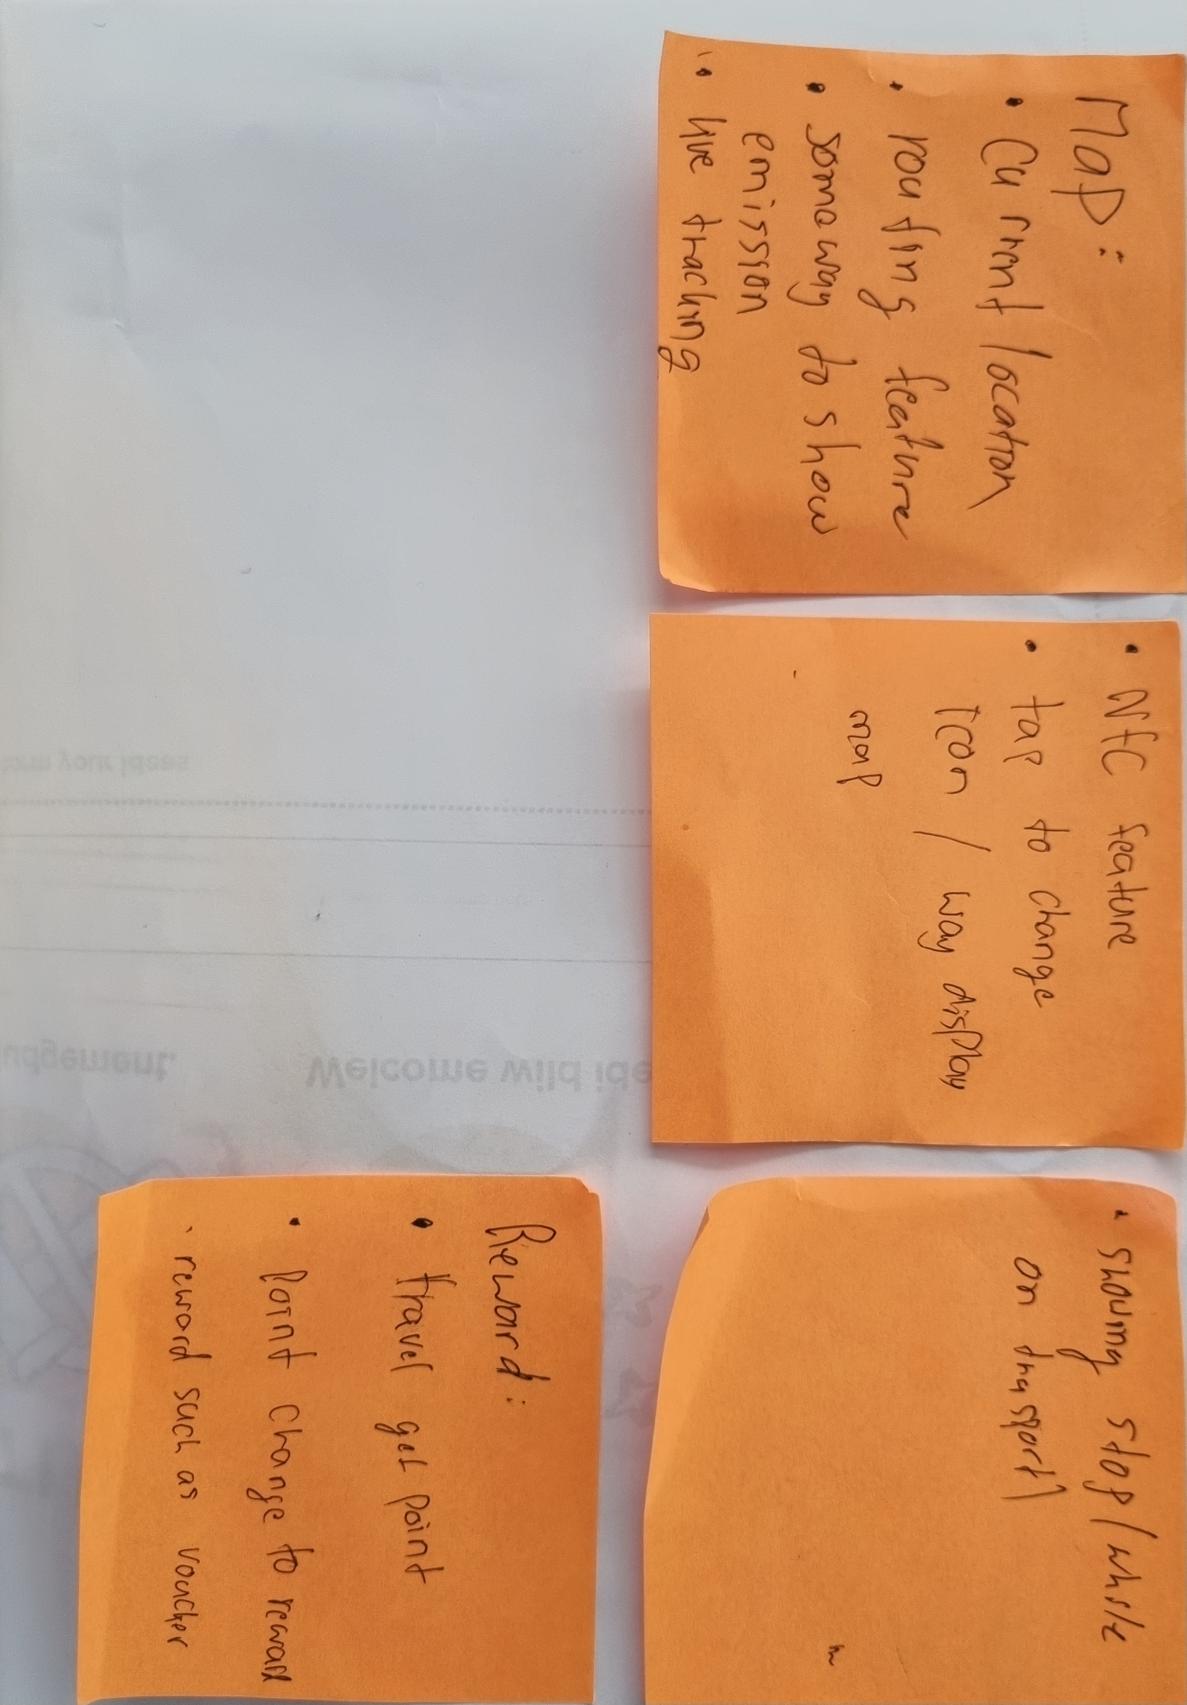 Map:
• Current location
• routing feature
• someway to show
emission
• live tracking
• NFC feature
• tap to change
icon / way display
map
• showing stop/while
on trasport
Reward:
• travel get point
• Point change to reward
• reward such as voucher
form your ideas
udgement.
Welcome wild ide